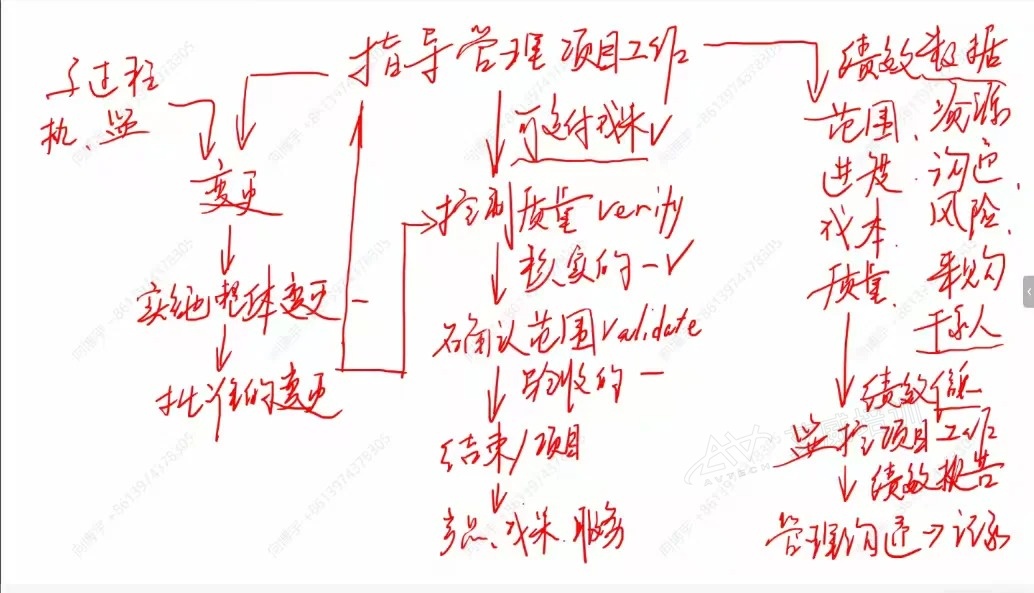 指导管理项目工作
子过程
执、监
变更
实施整体变更
批准的变更
可交付成果√
控制质量verify
核实的一√
确认范围validate
验收的一
结束/项目
产品、成果、服务
绩效数据
范围、资源
进度、沟通、
成本、风险、
质量、采购
干系人
绩效信息
监控项目工作
绩效报告
管理沟通→记录
AVTECH